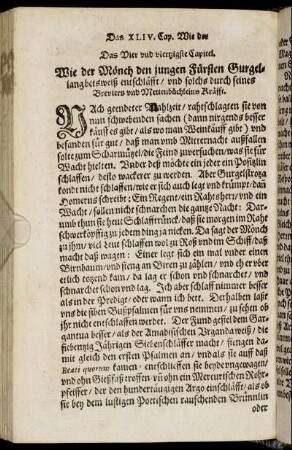 Das XLIV. Cap. Wie der
Das Vier vnd viertzigste Capitel.
Wie der Mönch den jungen Fürsten Gurgel-
langbeisweiß entschläfft / vnd solchs durch seines
Breviers vnd Mettenbüchleins Kräfft.
NAch geendeter Mahlzeit / rahtschlagten sie von
nun schwebenden sachen (dann nirgends besser
käufft es gibt / als wo man Weinkäuff gibt) vnd
befanden für gut / daß man vmb Mitternacht auffallen
solte zum Scharmützel / die Feind zuversuchen / was sie für
Wacht hielten. Vnder deß möchte ein jeder ein Posetzlin
schlaffen / desto wackerer zu werden. Aber Gurgelstrotza
konde nicht schlaffen / wie er sich auch legt vnd krümpt / dañ
Homerus schreibt: Ein Regent / ein Rahtsherr / vnd ein
Wacht / sollen nicht schnarchen die gantze Nacht: Dar-
umb thun sie heut Schlafftrünck / daß sie morgen im Raht
schwerköpffig zu jedem ding ja nicken. Da sagt der Mönch
zu jhm / viel leut schlaffen wol zu Roß vnd im Schiff / daß
macht daß wagen: Einer legt sich ein mal vnder einen
Birnbaum / vnd fieng an Biren zu zählen / vnd eh er vber
etlich tozend kam / da lag er schon vnd schnarchet / vnd
schnarchet schon vnd lag. Ich aber schlaff nimmer besser
als in der Predigt / oder wann ich bett. Derhalben laßt
vns die siben Bußpsalmen für vns nemmen / zu sehen ob
jhr nicht entschlaffen werdet. Der Fund gefiel dem Gar-
gantua besser / als der Amadisischen Vrganda weiß / die
siebentzig Järigen Siebenschläffer macht / fiengen da-
mit gleich den ersten Psalmen an / vnd als sie auff daß
Beati quorum kamen / entschlieffen sie beyde vngewagen /
vnd ohn Gießfaß troffen vñ ohn ein Mercurischen Rohr-
pfeiffer / der den hundertäugigen Argo einschläfft / als ob
sie bey dem lustigen Poetischen rauschenden Brünnlin
oder